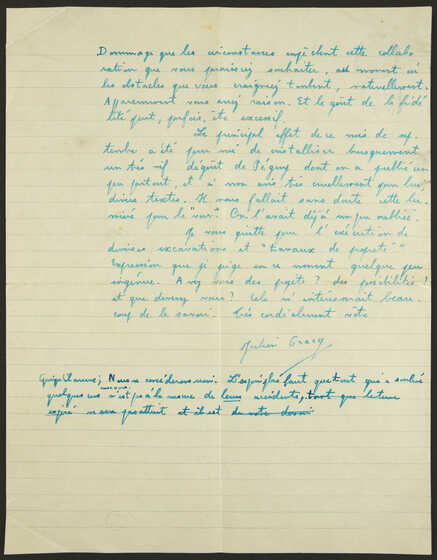 Dommage que les circonstances empêchent cette collabo-
ration que vous paraissiez souhaiter, au moment où
les obstacles que vous craigniez tombent, naturellement.
Apparemment vous aviez raison. Et le goût de la fidé-
lité peut, parfois, être excessif.
Le principal effet de ce mois de sep-
tembre a été pour moi de cristalliser brusquement
un très vif dégoût de Péguy dont on a publié un
peu partout, et à mon avis très cruellement pour lui
divers textes. Il nous fallait sans doute cette lu-
mière pour le "voir". On l'avait déjà un peu oublié.
Je vous quitte pour l'exécution de
diverses excavations et "travaux de propreté"
Expression que je juge en ce moment quelque peu
ingénue. Avez-vous des projets? des possibilités?
et que devenez-vous? Cela m'intéresserait beau-
coup de le savoir. Très cordialement vôtre
Julien Gracq
Nous
quelques uns n'est pas à la mesure de leurs accidents, tant que le
et il est